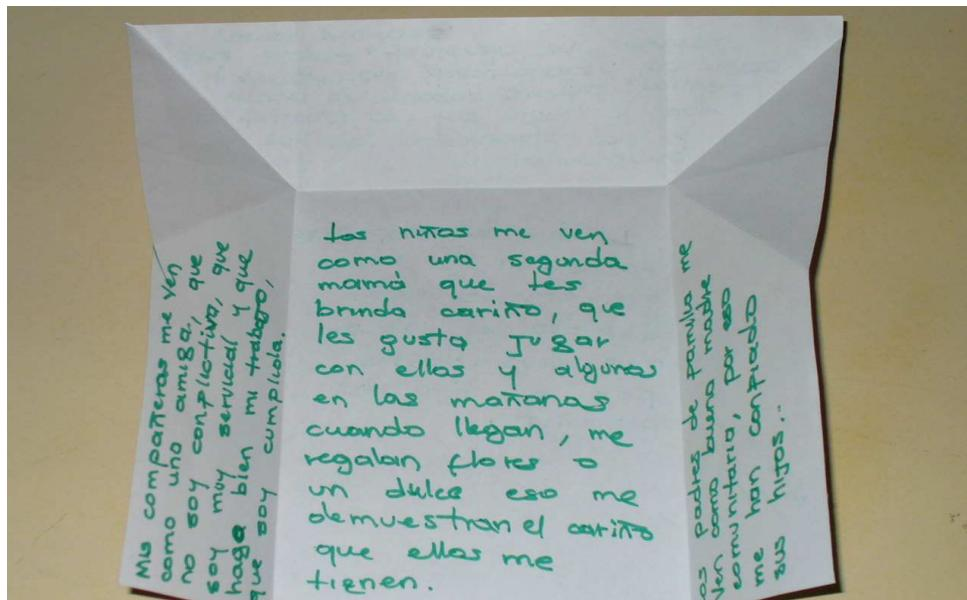 Mis compañeras me ven
como una amiga, que
no soy conflictiva, que
soy muy servicial y que
hago bien mi trabajo,
que soy cumplida.
Los niños me ven
como una segunda
mamá que les
brindo cariño, que
les gusta jugar
con ellos y algunos
en las mañanas
cuando llegan, me
regalan flores o
un dulce eso me
demuestran el cariño
que ellos me
tienen.
os padres de familia me
ven como buena madre
comunitaria, por eso
me han confiado
sus hijos..